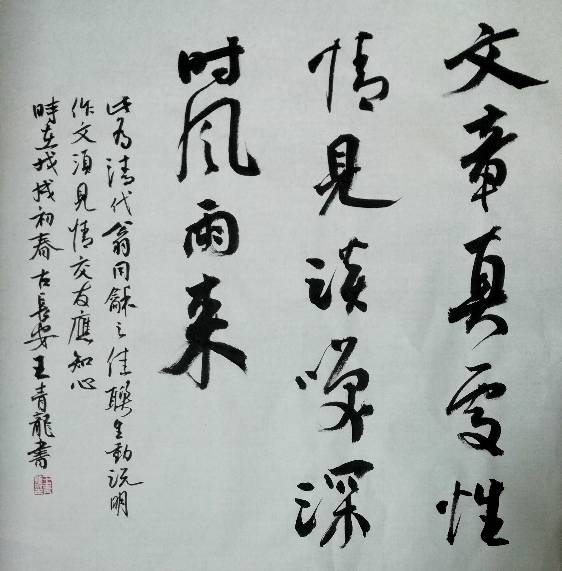 文章真处性
情見谈噱深
时风雨来
此为清代翁同龢之佳聯生動说明
作文须見情交友應知心
時在戊戌初春古長安王青龍書